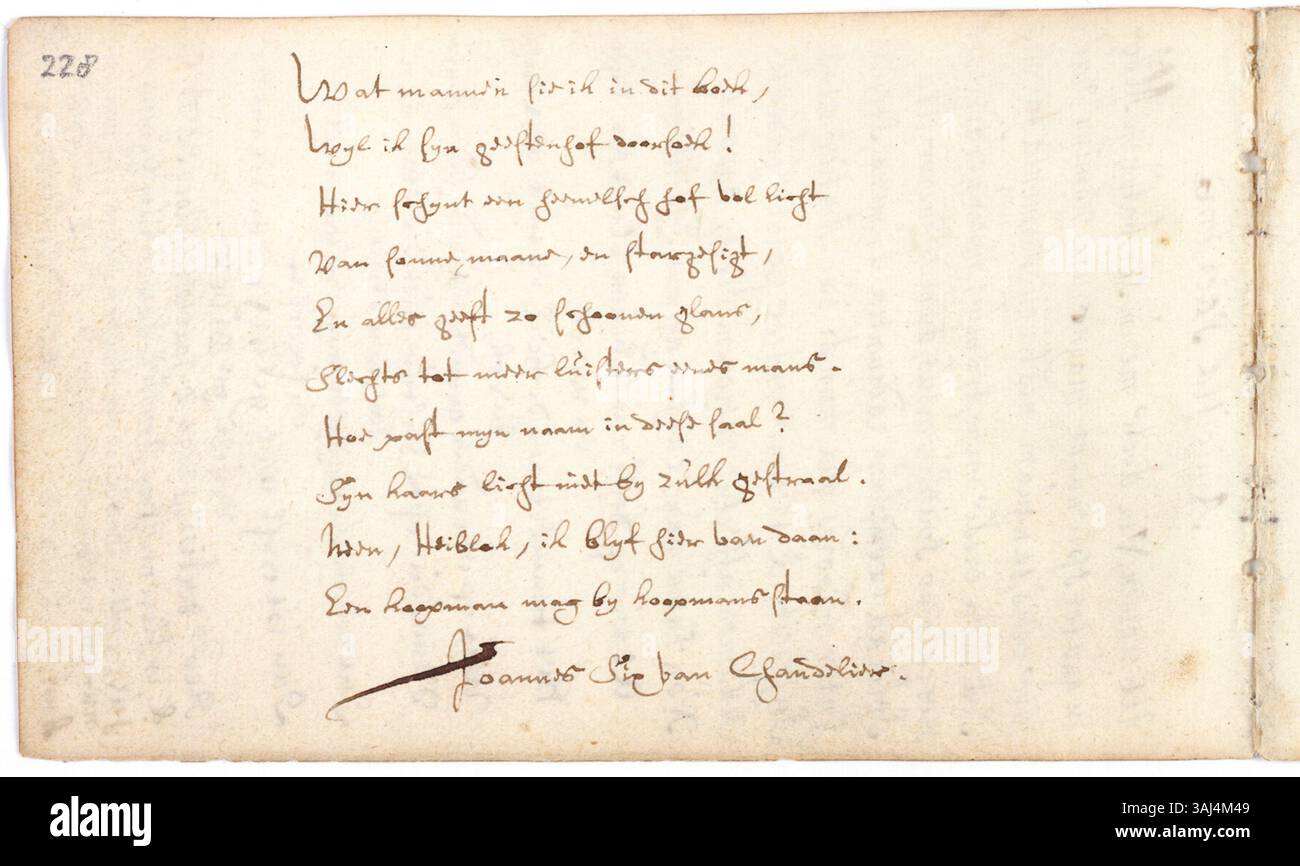 228
Wat mannen sie ik in dit boek,
Wyl ik syn geestenhof doorsoek!
Hier schynt een heemelsch hof vol licht
Van sonne, maane, en stargesigt,
En alles geeft zo schoonen glans,
Slechts tot meer luisters eenes mans.
Hoe past myn naam in deese saal?
Syn kaars licht niet by zulk gestraal.
Neen, Heiblok, ik blyf hier van daan:
Een koopman mag by koopmans staan.
Joannes Six van Chandelier.
alamy
alamy
alamy
alamy
alamy
alamy
alamy
Image ID: 3AJ4M49
www.alamy.com